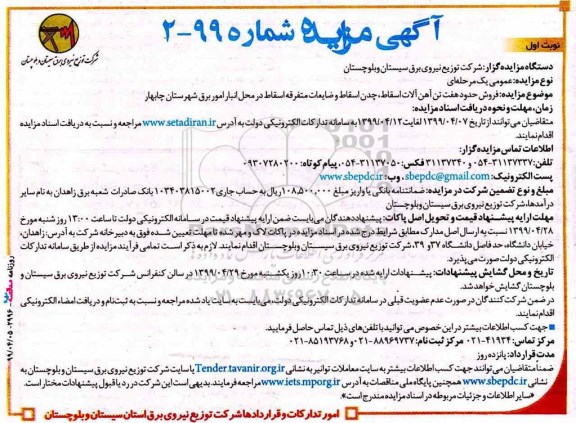 آگهی مزایده شماره ۹۹-۲
شرکت توزیع نیروی برق سیستان و بلوچستان
نوبت اول
دستگاه مزایده گزار: شرکت توزیع نیروی برق سیستان و بلوچستان
نوع مزایده: عمومی یک مرحله‌ای
موضوع مزایده: فروش حدود هفت تن آهن آلات اسقاط، چدن اسقاط و ضایعات متفرقه اسقاط در محل انبار امور برق شهرستان چابهار
زمان، مهلت و نحوه دریافت اسناد مزایده:
متقاضیان می‌توانند از تاریخ ۱۳۹۹/۰۴/۰۷ لغایت ۱۳۹۹/۰۴/۱۲ به سامانه تدارکات الکترونیکی دولت به آدرس www.setadiran.ir مراجعه و نسبت به دریافت اسناد مزایده
اقدام نمایند.
اطلاعات تماس مزایده گزار:
تلفن: ۳۱۱۳۷۳۳۷-۰۵۴ و ۳۱۱۳۷۳۴۰ فکس: ۳۱۱۳۷۰۵۰-۰۵۴ پیام کوتاه: ۰۹۳۰۷۲۸۰۲۰۰
پست الکترونیک: sbepdc@gmail.com، وب: www.sbepdc.ir
مبلغ و نوع تضمین شرکت در مزایده: ضمانتنامه بانکی یا واریز مبلغ ۱۰۸,۵۰۰,۰۰۰ ریال به حساب جاری ۱۰۳۴۰۳۸۱۵۰۰۲ بانک صادرات شعبه برق زاهدان به نام سایر
درآمدها، شرکت توزیع نیروی برق سیستان و بلوچستان
مهلت ارایه پیشنهاد قیمت و تحویل اصل پاکات: پیشنهاد دهندگان می‌بایست ضمن ارایه پیشنهاد قیمت در سامانه الکترونیکی دولت تا ساعت ۱۳:۰۰ روز شنبه مورخ
۱۳۹۹/۰۴/۲۸ نسبت به ارسال اصل مدارک مطابق شرایط درج شده در اسناد مزایده در پاکات لاک و مهر شده تا مهلت تعیین شده فوق به دبیرخانه شرکت به آدرس: زاهدان،
خیابان دانشگاه، حد فاصل دانشگاه ۳۷ و ۳۹، شرکت توزیع نیروی برق سیستان و بلوچستان اقدام نمایند. لازم به ذکر است تمامی فرآیند مزایده از طریق سامانه تدارکات
الکترونیکی دولت صورت می‌پذیرد.
تاریخ و محل گشایش پیشنهادات: پیشنهادات ارایه شده در ساعت ۱۰:۳۰ روز یکشنبه مورخ ۱۳۹۹/۰۴/۲۹ در سالن کنفرانس شرکت توزیع نیروی برق سیستان و
بلوچستان گشایش خواهد شد.
در ضمن شرکت کنندگان در صورت عدم عضویت قبلی در سامانه تدارکات الکترونیکی دولت، می‌بایست به سایت یاد شده مراجعه و نسبت به ثبت نام و دریافت امضاء الکترونیکی
اقدام نمایند.
جهت کسب اطلاعات بیشتر در این خصوص می‌توانید با تلفن‌های ذیل تماس حاصل فرمایید.
مرکز تماس: ۴۱۹۳۴-۰۲۱ مرکز ثبت نام: ۸۸۹۶۹۷۳۷-۰۲۱ و ۸۵۱۹۳۷۶۸-۰۲۱
مدت قرارداد: پانزده روز
ضمناً متقاضیان می‌توانند جهت کسب اطلاعات بیشتر به سایت معاملات توانیر به نشانی Tender.tavanir.org.ir یا سایت شرکت توزیع نیروی برق سیستان و بلوچستان به
نشانی www.sbepdc.ir همچنین پایگاه ملی مناقصات به آدرس www.iets.mporg.ir مراجعه فرمایند. بدیهی است این شرکت در رد یا قبول پیشنهادات مختار است.
«سایر اطلاعات و جزئیات مربوطه در اسناد مزایده مندرج است».
امور تدارکات و قراردادها شرکت توزیع نیروی برق استان سیستان و بلوچستان